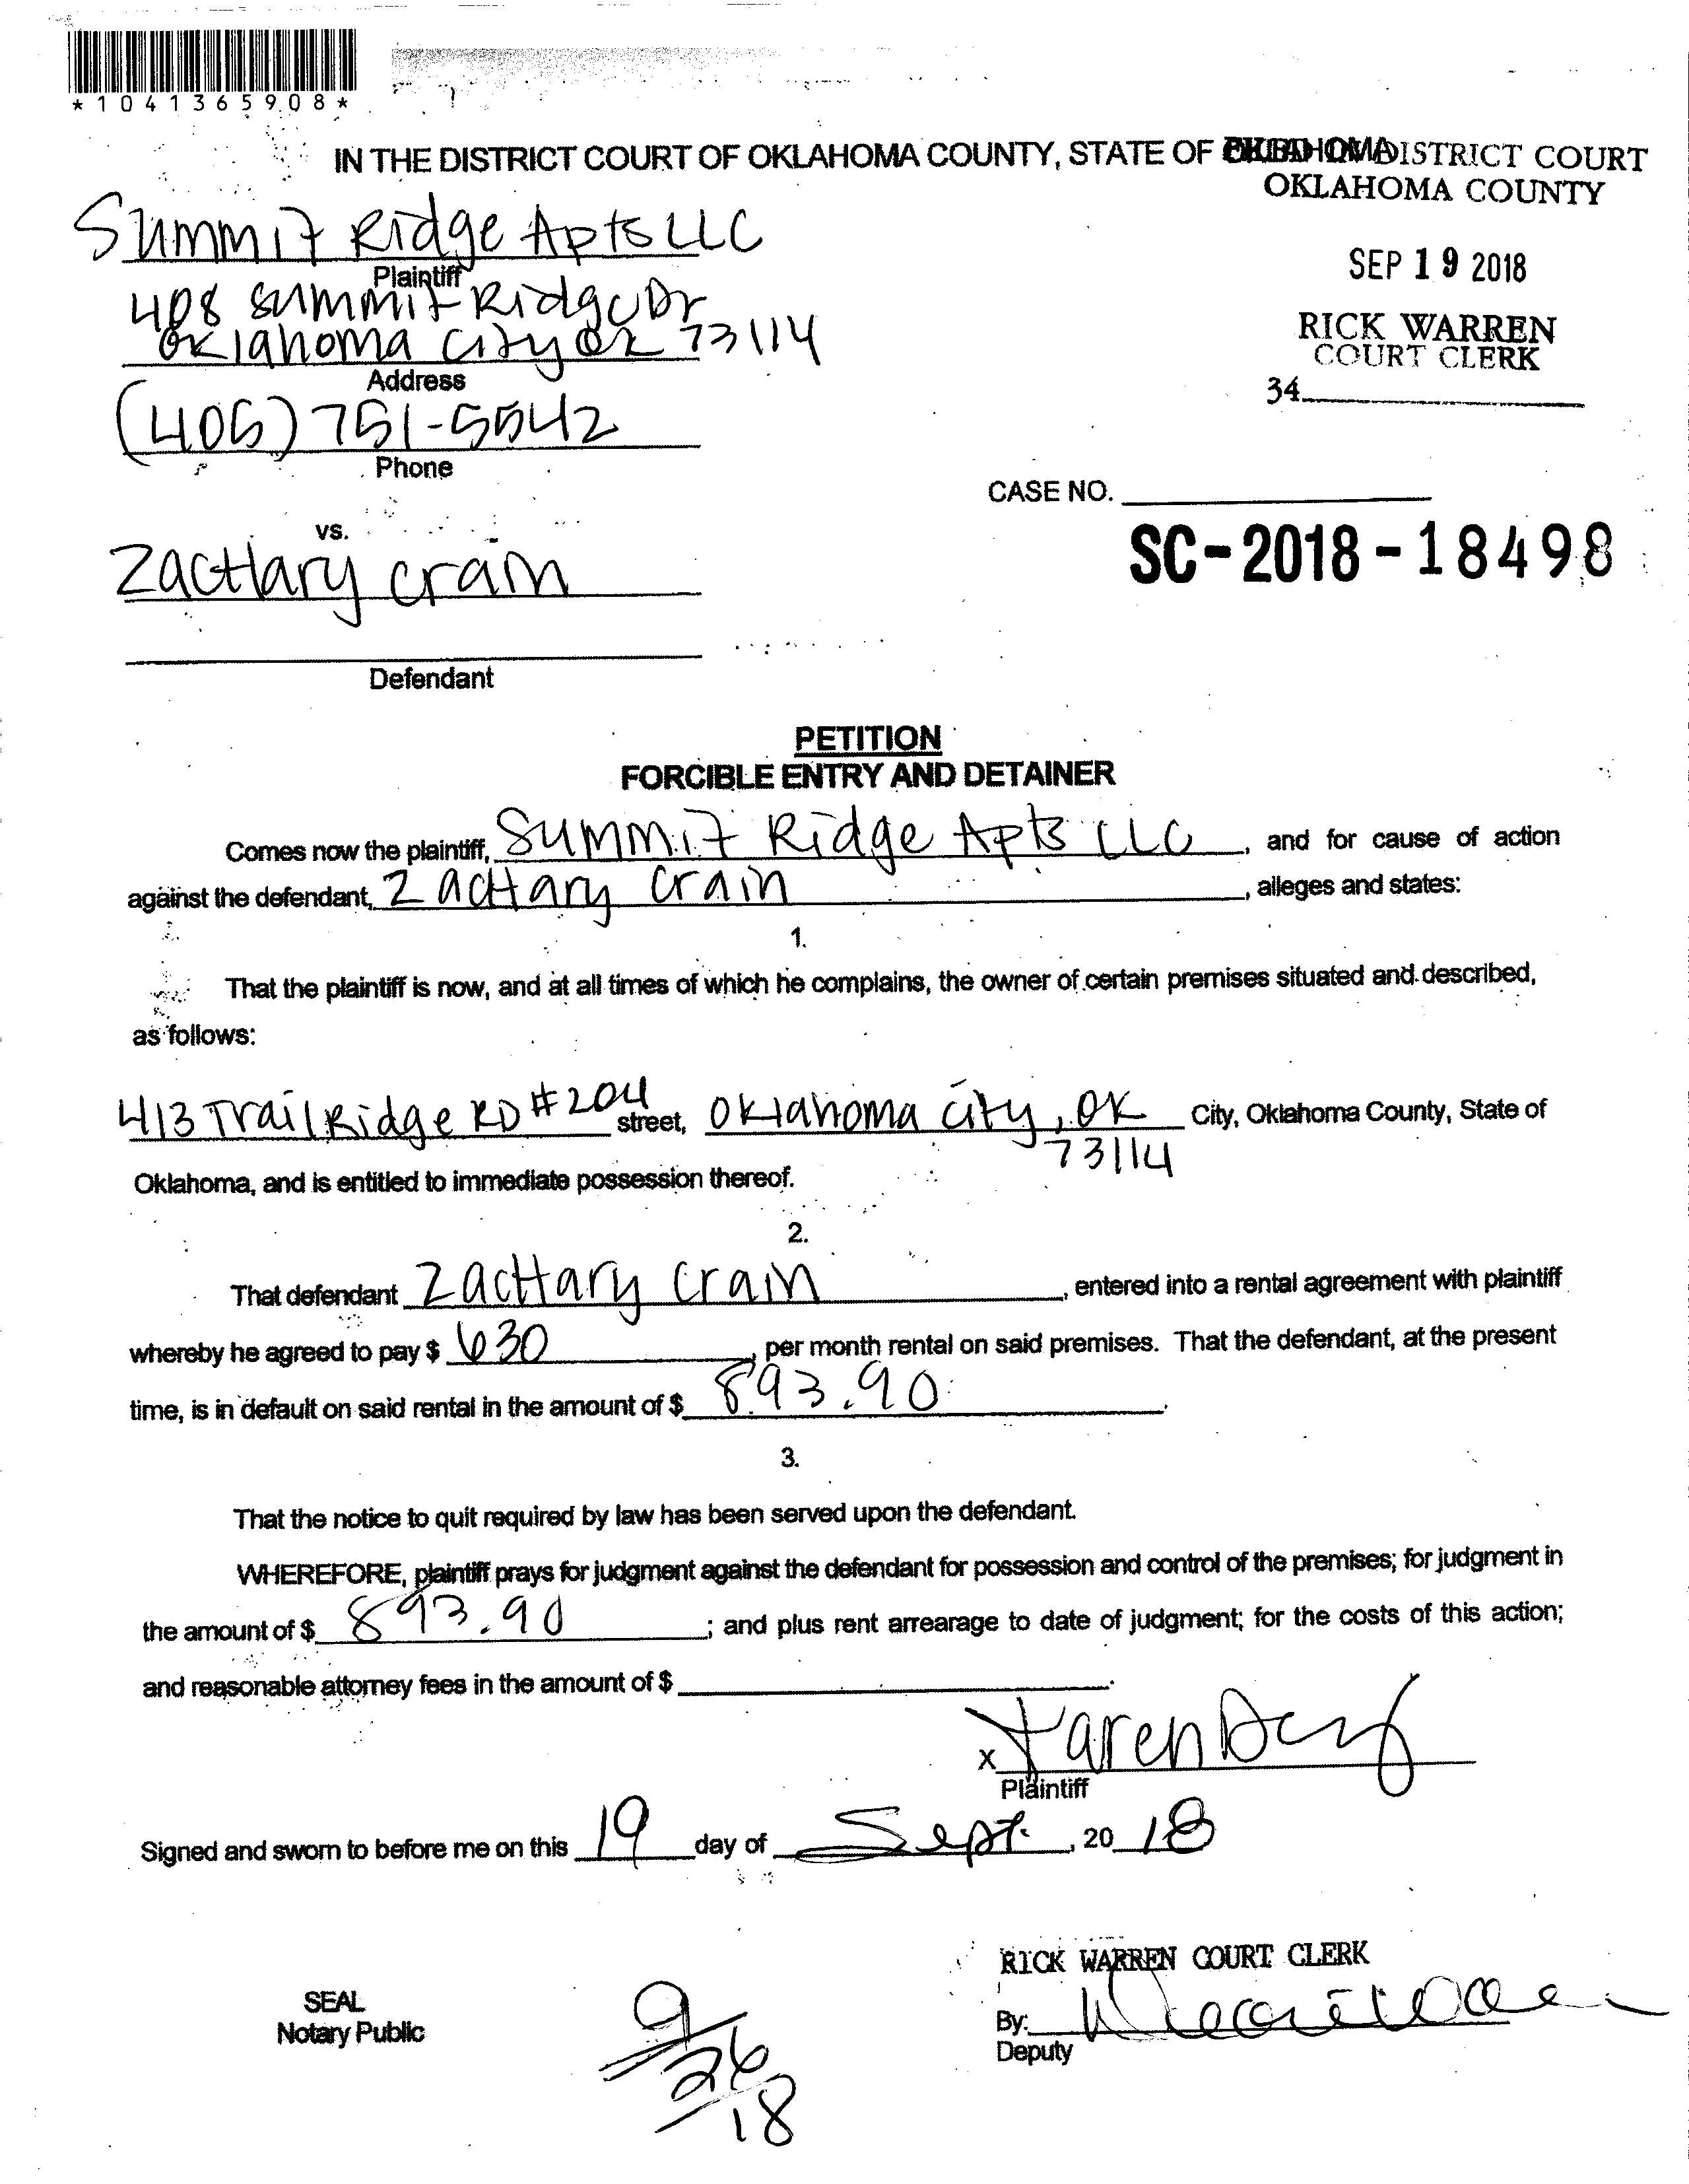 *1041365908*
IN THE DISTRICT COURT OF OKLAHOMA COUNTY, STATE OF OKLAHOMA
DISTRICT COURT
OKLAHOMA COUNTY
Summit Ridge Apts LLC
Plaintiff
SEP 19 2018
408 Summit Ridge Dr
Oklahoma City OK 73114
Address
RICK WARREN
COURT CLERK
34
(405) 751-5542
Phone
CASE NO.
SC-2018-18498
vs.
Zacttary Crain
Defendant
PETITION
FORCIBLE ENTRY AND DETAINER
Comes now the plaintiff, Summit Ridge Apts LLC, and for cause of action
against the defendant, Zacttary Crain, alleges and states:
1.
That the plaintiff is now, and at all times of which he complains, the owner of certain premises situated and described,
as follows:
413 Trail Ridge RD #204 street, Oklahoma City, OK City, Oklahoma County, State of
73114
Oklahoma, and is entitled to immediate possession thereof.
2.
That defendant Zacttary Crain, entered into a rental agreement with plaintiff
whereby he agreed to pay $ 630, per month rental on said premises. That the defendant, at the present
time, is in default on said rental in the amount of $ 893.90.
3.
That the notice to quit required by law has been served upon the defendant.
WHEREFORE, plaintiff prays for judgment against the defendant for possession and control of the premises; for judgment in
the amount of $ 893.90; and plus rent arrearage to date of judgment; for the costs of this action;
and reasonable attorney fees in the amount of $.
X Karen
Plaintiff
Signed and sworn to before me on this 19 day of Sept., 2018
RICK WARREN COURT CLERK
SEAL
Notary Public
By:
Deputy
9/26/18